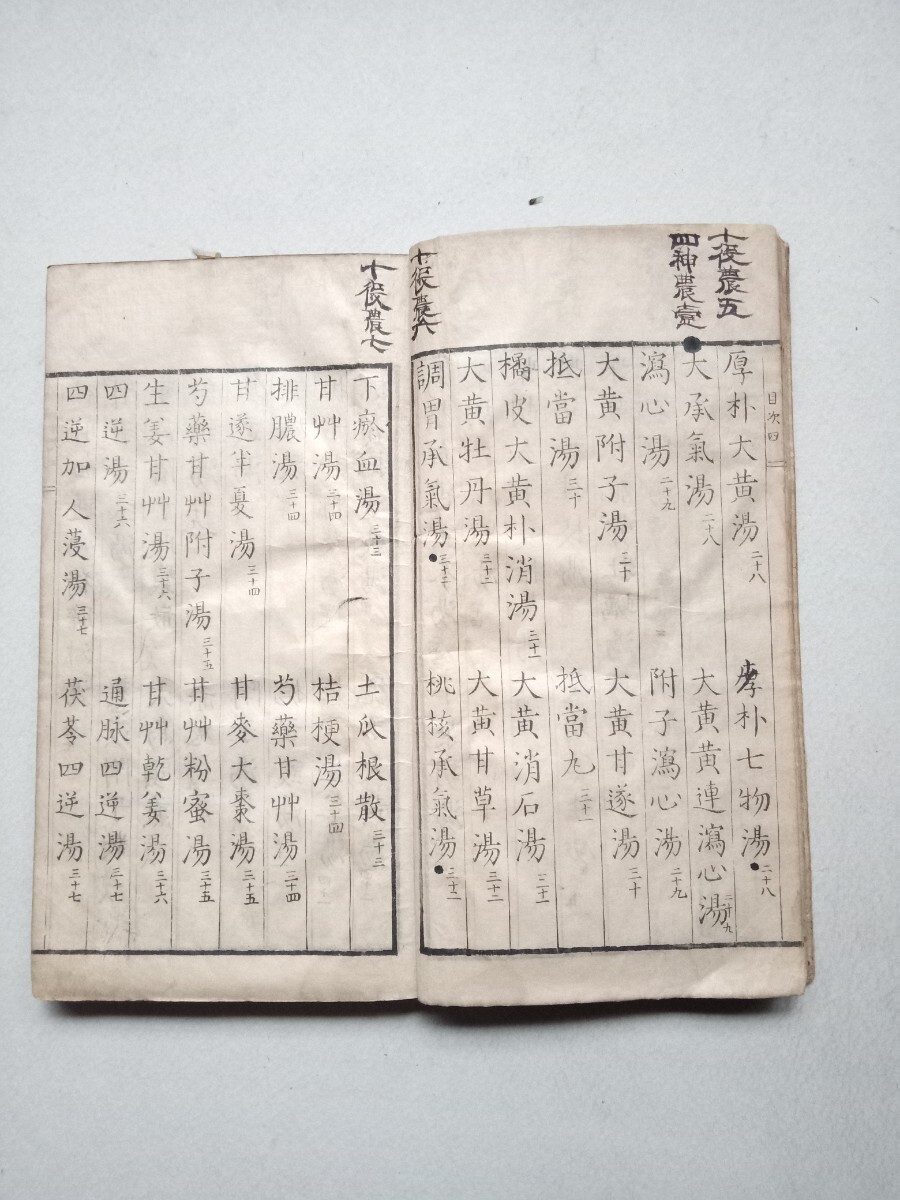 十後農五
四神農壹
目次四
厚朴大黄湯 二十八
厚朴七物湯 二十八
大承氣湯 二十八
大黄黄連瀉心湯 二十九
瀉心湯 二十九
附子瀉心湯 二十九
大黄附子湯 三十
大黄甘遂湯 三十
抵當湯 三十
抵當丸 三十一
橘皮大黄朴消湯 三十一
大黄消石湯 三十一
大黄牡丹湯 三十二
大黄甘草湯 三十二
十後農六
調胃承氣湯 三十二
桃核承氣湯 三十二
十後農七
下瘀血湯 三十三
土瓜根散 三十三
甘艸湯 三十四
桔梗湯 三十四
排膿湯 三十四
芍藥甘艸湯 三十四
甘遂半夏湯 三十四
甘麥大棗湯 三十五
芍藥甘艸附子湯 三十五
甘艸粉蜜湯 三十五
生姜甘艸湯 三十六
甘艸乾姜湯 三十六
四逆湯 三十六
通脉四逆湯 三十七
四逆加人蓡湯 三十七
茯苓四逆湯 三十七